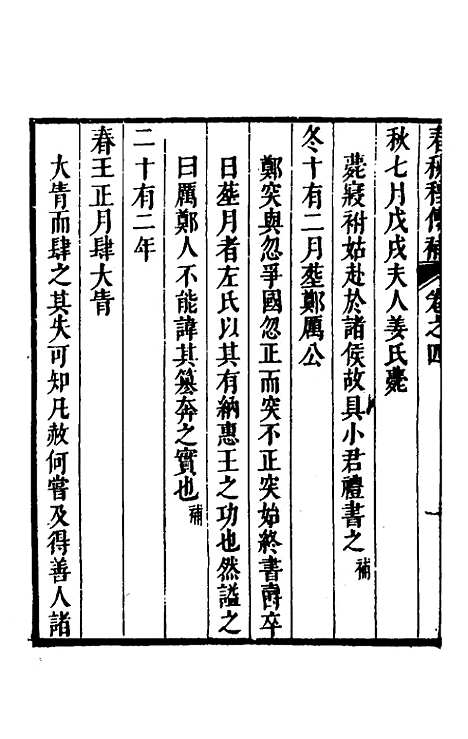 春秋程傳補 卷之四 一
秋七月戊戌夫人姜氏薨
薨寢祔姑赴於諸侯故具小君禮書之補
冬十有二月塟鄭厲公
鄭突與忽爭國忽正而突不正突始終書爵卒
日塟月者左氏以其有納惠王之功也然謚之
曰厲鄭人不能諱其篡奔之實也補
二十有二年
春王正月肆大眚
大眚而肆之其失可知凡赦何嘗及得善人諸